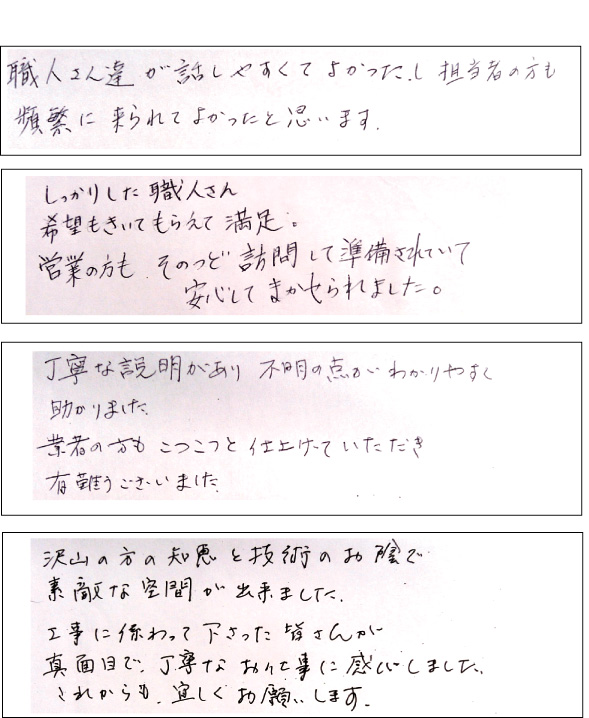 職人さん達が話しやすくてよかったし担当者の方も
頻繁に来られてよかったと思います.
しっかりした職人さん
希望もきいてもらえて満足。
営業の方も そのつど訪問して準備されていて
安心してまかせられました。
丁寧な説明があり 不明の点がわかりやすく
助かりました.
業者の方もこつこつと仕上げていただき
有難うございました.
沢山の方の知恵と技術のお陰で
素敵な空間が出来ました.
工事に係わって下さった皆さんが
真面目で、丁寧なお仕事に感心しました.
これからも、宜しくお願いします.